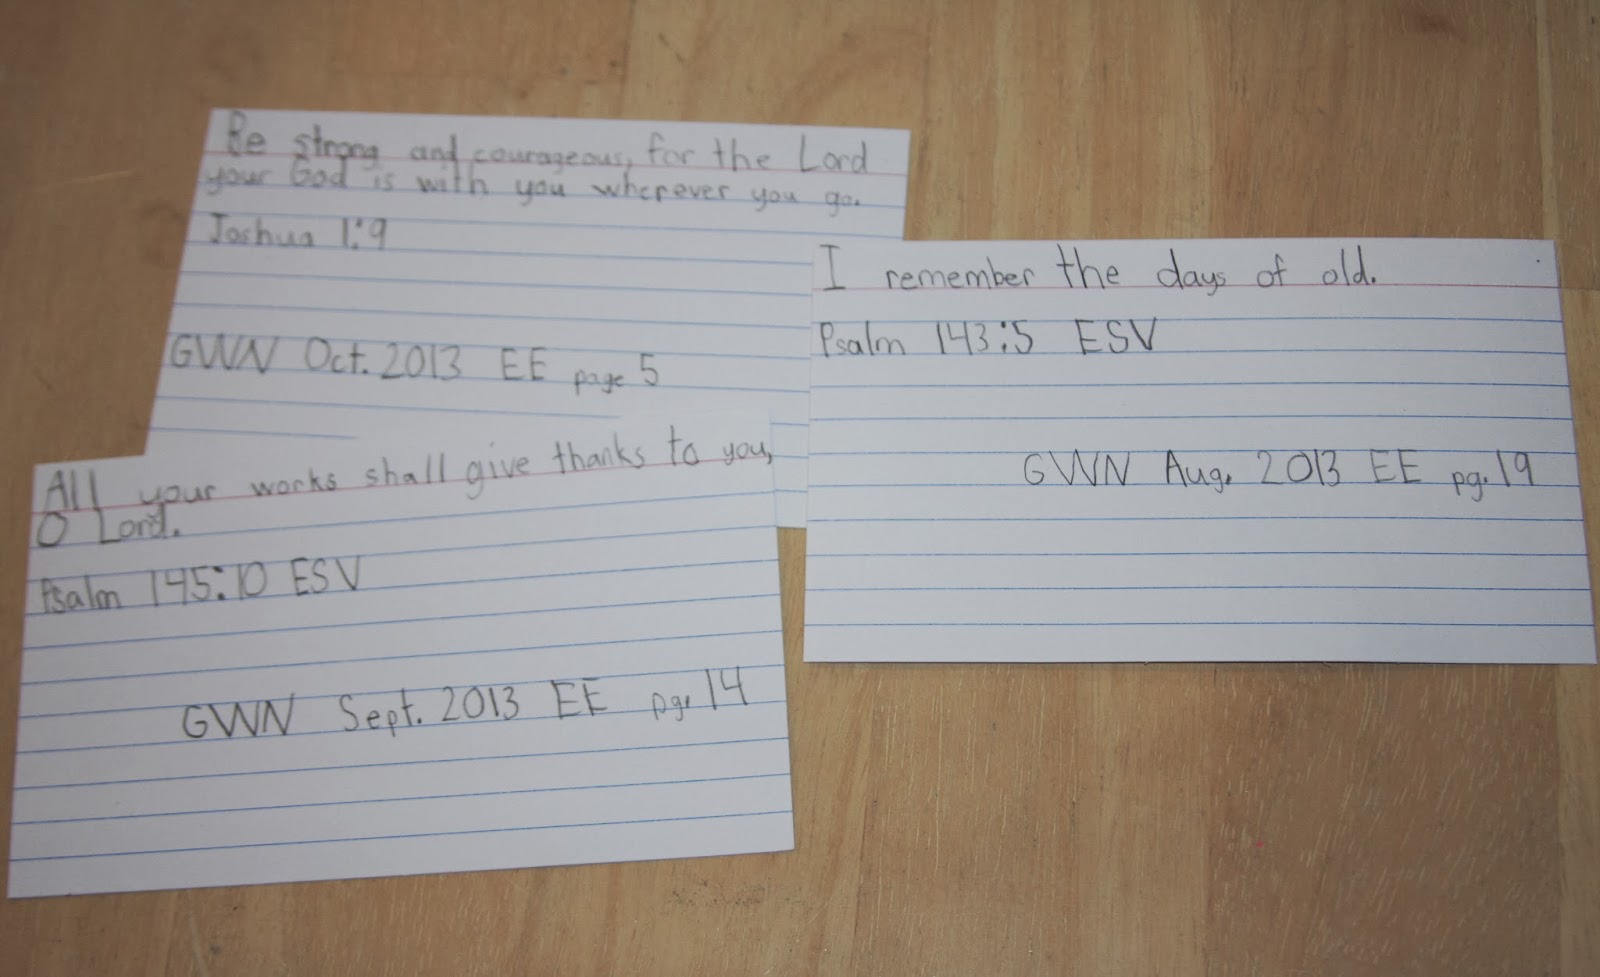 Be strong and courageous, for the Lord
your God is with you wherever you go.
Joshua 1:9
GWN Oct. 2013 EE page 5
I remember the days of old.
Psalm 143:5 ESV
GWN Aug. 2013 EE pg. 19
All your works shall give thanks to you,
O Lord.
Psalm 145:10 ESV
GWN Sept. 2013 EE pg. 14